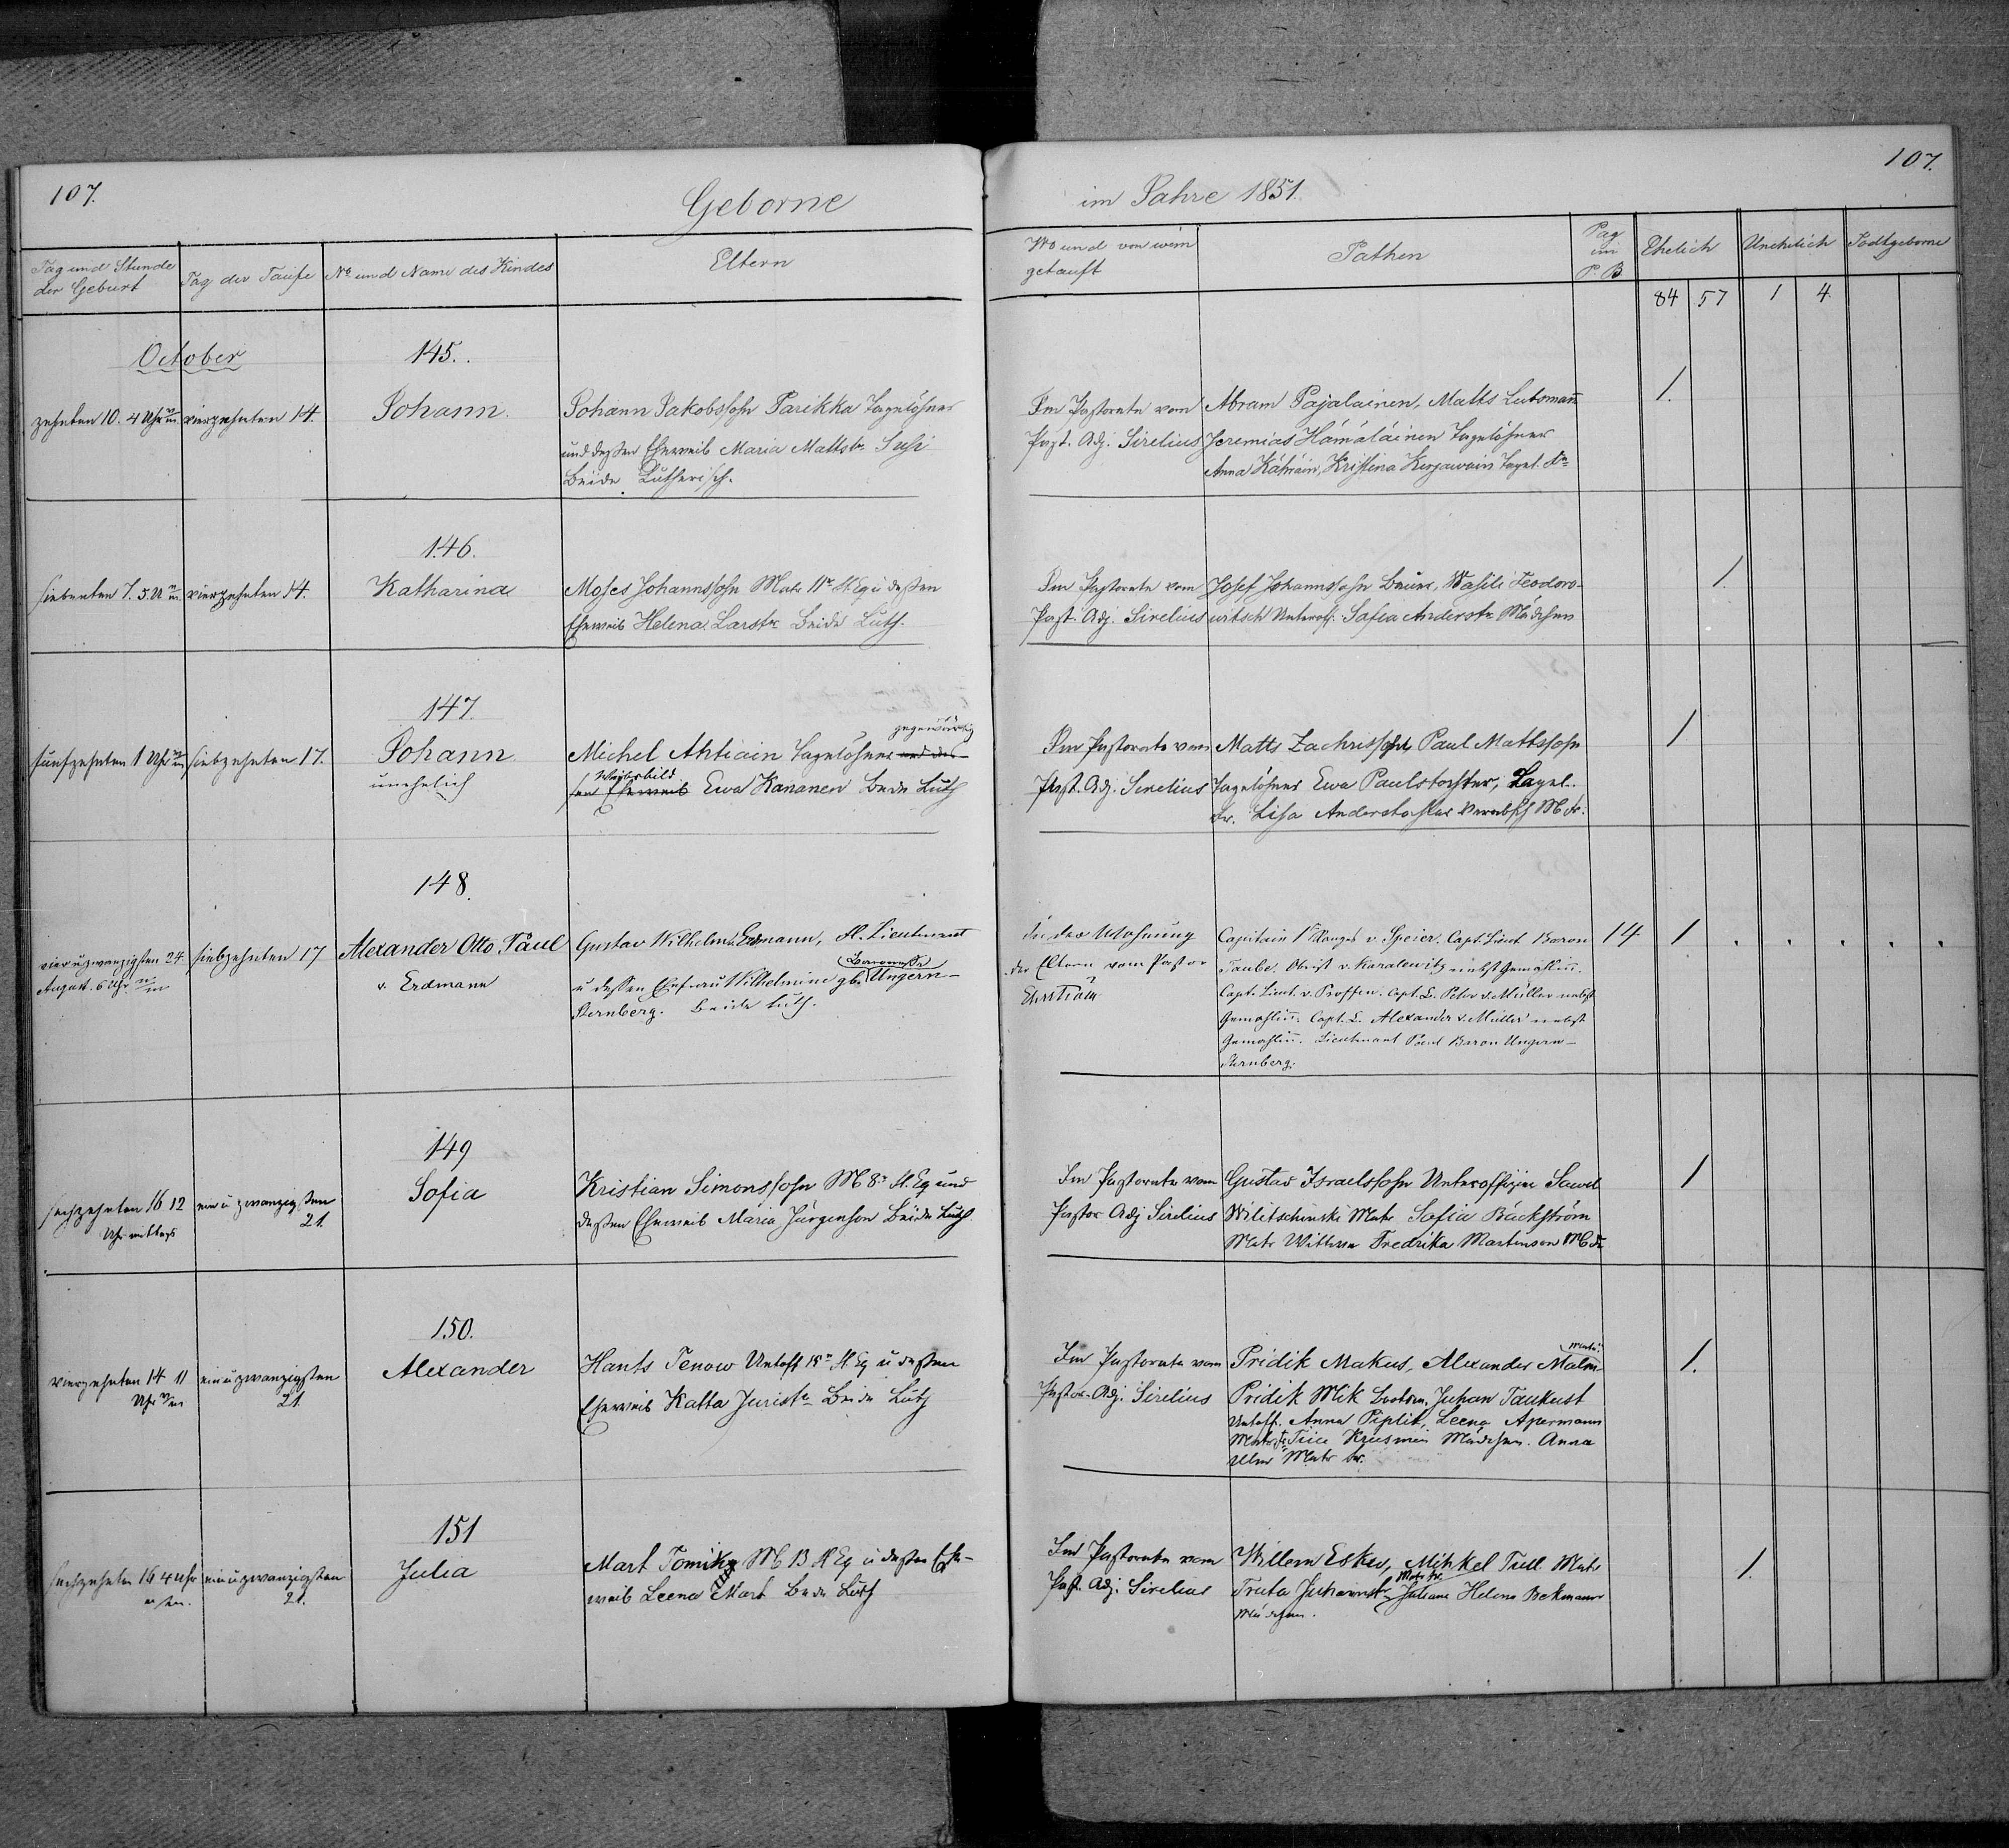 107.
Geborne
im Jahre 1851.
107.
Tag und Stunde der Geburt
Tag der Taufe
No und Name des Kindes
Eltern
Wo und von wem getauft
Pathen
Pag im P. B
Ehelich
Unehelich
Todtgeborne
84 57 1 4
October
145.
zehnten 10. 4 Uhr
vierzehnten 14.
Johann.
Johann Jakobssohn Parikka Tagelöhner
und deßen Eheweib Maria Mattstr Susi
Beide Lutherisch.
Im Pastorate vom
Past. Adj. Sirelius
Abram Pajalainen, Matts Lutsmañ
Jeremias Hämäläinen Tagelöhner
Anna Kähräin, Kristina Kerjawain Tagel.
1.
146.
siebenten 7. 5. U
vierzehnten 14.
Katharina
Moses Johannssohn Matr 11r Fl. Eq u deßen
Eheweib Helena Larstr Beide Luth.
Im Pastorate vom
Past. Adj. Sirelius
Josef Johannssohn Bauer, Wasili Feodoro-
witsch Unteroff. Safia Anderstr Mädchen
1.
147.
fünfzehnten 1 Uhr
siebzehnten 17.
Johann
unehelich
gegenwärtig
Michel Ahtiain Tagelöhner und des-
Weibsbild
sen Eheweib Ewa Kananen Beide Luth
Im Pastorate vom
Past. Adj. Sirelius
Matts Zachrissohn Paul Mattssohn
Tagelöhner Ewa Paulstochter, Tagel.
Fr. Lisa Anderstochter M Fr.
1
148.
vier u zwanzigsten 24.
August. 6 Uhr
siebzehnten 17
Alexander Otto Paul
v. Erdmann
Gustav Wilhelm v. Erdmann, Fl. Lieutenant
Baronesse
u dessen Ehefrau Wilhelmine gb. Ungern-
Sternberg. Beide luth.
In der Wohnung
der Eltern vom Pastor
Ehrström
Capitain 1n Ranges v. Speier. Capt. Lieut Baron
Taube. Obrist v. Karalewitz nebst Gemahliñ.
Capt. Lieut. v. Proffen. Capt. L. Peter v. Müller nebst
Gemahliñ. Capt. L. Alexander v. Müller nebst
Gemahliñ. Lieutenant Paul Baron Ungern-
Sternberg.
14
1 . . . . .
149
sechzehnten 16 12
Uhr mittags
ein u zwanzigsten
21.
Sofia
Kristian Simonssohn M 8r Fl. Eq und
deßen Eheweib Maria Jürgenson Beide Luth
Im Pastorate vom
Pastor Adj Sirelius
Gustav Israelssohn Unteroffizier Sawel
Wilitschinski Matr Sofia Bäckström
Matr Wittwe Fredrika Martinson M Fr
1
150.
vierzehnten 14 11
Uhr
ein u zwanzigsten
21.
Alexander
Hants Tenow Untoff 15n Fl Eq u deßen
Eheweib Katta Juristr Beide Luth
Im Pastorate vom
Pastor-Adj. Sirelius
Pridik Makus, Alexander Malm
Matr.
Pridik Mik Bootsm. Juhan Taukust
Untoff. Anna Piplik, Leena Apermann
Matr Fr Triu Kruusmin Mädchen. Anna
Ulm Matr Fr.
1.
151
sechzehnten 16 4 Uhr
ein u zwanzigsten
21.
Julia
Mart Tomik M 13 Fl Eq u deßen Ehe-
weib Leena Mart Beide Luth
Im Pastorate vom
Past. Adj. Sirelius
Willem Eskew, Mihkel Tull Matr
Matr Fr.
Truta Juhannstr Juliane Helene Bekmann
Mädchen.
1.